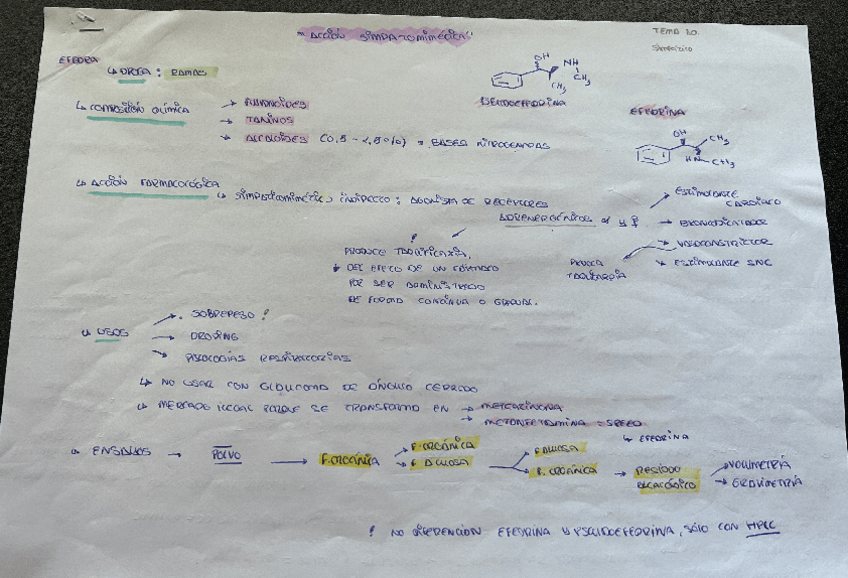 "ACCIÓN SIMPATICOMIMÉTICA"
TEMA 20.
EFEDRA
↳ DROGA : RAMAS
OH
NH
CH3
CH3
PSEUDOEFEDRINA
EFEDRINA
OH
CH3
HN
CH3
↳ COMPOSICIÓN QUÍMICA → FLAVONOIDES
→ TANINOS
→ ALCALOIDES (0,5 - 2,5%) = BASES NITROGENADAS
↳ ACCIÓN FARMACOLÓGICA
↳ SIMPATICOMIMÉTICO INDIRECTO : AGONISTA DE RECEPTORES
ADRENERGÉNICOS α y β
→ ESTIMULANTE CARDIACO
→ BRONCODILATADOR
→ VASOCONSTRICTOR
→ ESTIMULANTE SNC
PROVOCA TAQUICARDIA
!
PRODUCE TAQUIFILAXIA,
↓ DEL EFECTO DE UN FÁRMACO
POR SER ADMINISTRADO
DE FORMA CONTINUA O GRADUAL.
↳ USOS → SOBREPESO !
→ DROPING
→ PATOLOGÍAS RESPIRATORIAS
↳ NO USAR CON GLAUCOMA DE ÁNGULO CERRADO
↳ MERCADO ILEGAL PORQUE SE TRANSFORMA EN → METCATINONA
→ METANFETAMINA = SPEED
↳ EFEDRINA
↳ ENSAYOS → POLVO → F. ORGÁNICA → F. ORGÁNICA
→ F. ACUOSA → F. ACUOSA
→ F. ORGÁNICA → RESIDUO ALCALÓIDICO → VOLUMETRÍA
→ GRAVIMETRÍA
! NO DIFERENCIAN EFEDRINA Y PSEUDOEFEDRINA, SÓLO CON HPLC